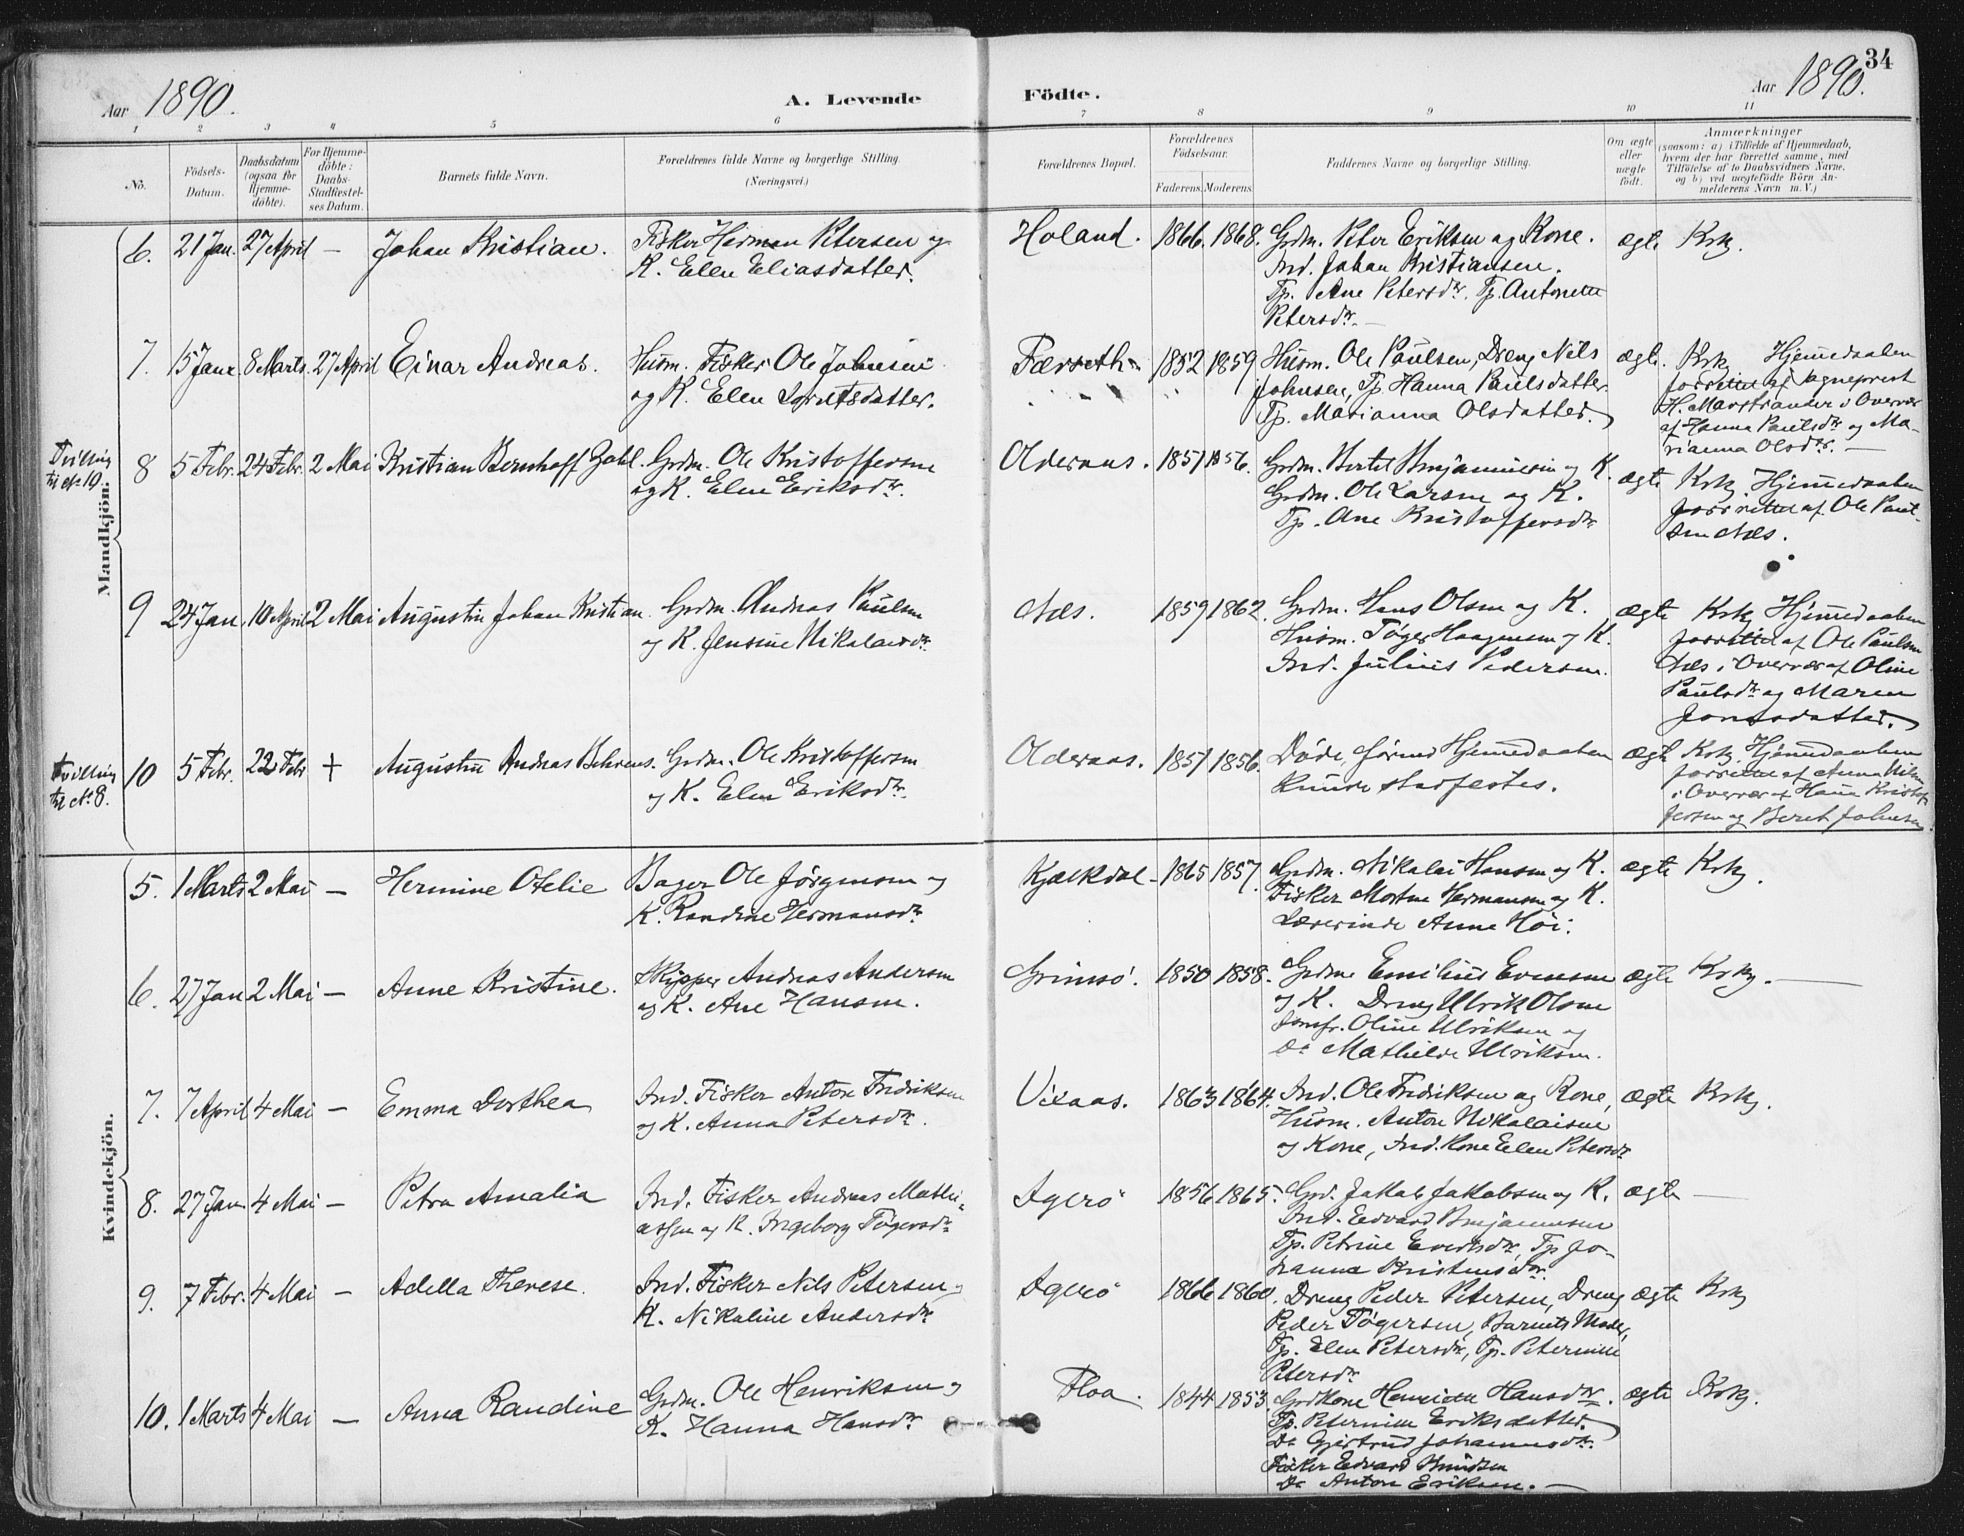 34
Aar 1890.
A. Levende Födte.
Aar 1890.
1 2 3 4 5 6 7 8 9 10 11
No.
Födsels-
Datum.
Daabsdatum
(ogsaa for
Hjemme-
döbte).
For Hjemme-
döbte:
Daabs-
Stadfæstel-
ses Datum.
Barnets fulde Navn.
Forældrenes fulde Navne og borgerlige Stilling.
(Næringsvei.)
Forældrenes Bopæl.
Forældrenes
Födselsaar.
Faderens. Moderens.
Faddernes Navne og borgerlige Stilling.
Om ægte
eller
uægte
födt.
Anmærkninger
(saasom: a) i Tilfælde af Hjemmedaab,
hvem der har forrettet samme, med
Tilföielse af to Daabsvidners Navne,
og b) ved uægtefödte Börn An-
melderens Navn m. V.)
Mandkjön.
6. 21 Jan. 27 April — Johan Kristian. Fisker Herman Petersen og Holand. 1866. 1868. Grdm. Peter Eriksen og Kone. ægte Krk.
K. Elen Eliasdatter. Ind. Johan Kristiansen.
Tp. Ane Petersdr. Tp. Antonette
Petersdr. —
7. 15 Janr. 8 Marts 27 April Einar Andreas. Husm. Fisker Ole Johnsen Færseth 1852 1859 Husm. Ole Paulsen, Dreng Nils ægte. Krk. Hjemmedaaben
og K. Elen Lorntsdatter. Johnsen, Tp. Hanna Paulsdatter. forrettet af Sogneprest
Tp. Marianna Olsdatter. H. Marstrander i Overvær
af Hanna Paulsdr og Ma-
rianna Olsdr. —
Tvilling
til No 10.
8 5 Febr. 24 Febr. 2 Mai Kristian Bernhoff Zahl. Grdm. Ole Kristoffersen Olderaas. 1857 1856. Grdm. Bertel Benjaminsen og K. ægte Krk. Hjemmedaaben
og K. Elen Eriksdr. Grdm. Ole Larsen og K. forrettet af Ole Paul-
Tp. Ane Kristoffersdr sen Næs.
9 24 Jan. 10 April 2 Mai Augustin Johan Kristian. Grdm. Andreas Paulsen Næs. 1859 1862. Grdm. Hans Olsen og K. ægte Krk. Hjemmedaaben
og K. Jensine Nikolaisdr. Husm. Tøger Haagensen og K. forrettet af Ole Paulsen
Ind. Julius Pedersen. Næs i Overvær af Oline
Paulsdr og Maren
Jonsdatter.
Tvilling
til No 8.
10 5 Febr. 22 Febr + Augustin Andreas Behrens. Grdm. Ole Kristoffersen Olderaas. 1857 1856. Døde, førend Hjemmedaaben ægte Krk. Hjemmedaaben
og K. Elen Eriksdr. kunde stadfestes. forrettet af Anna Nilsen
i Overvær af Hans Kristof-
fersen og Beret Johnsen
Kvindekjön.
5. 1 Marts 2 Mai — Hermine Otelie Bager Ole Jørgensen og Kjelkdal 1865 1857. Grdm. Nikolai Hansen og K. ægte Krk.
K. Randine Hermansdr Fisker Morten Hermansen og K.
Lærerinde Anne Høi.
6. 27 Jan 2 Mai — Anne Kristine. Skipper Andreas Andersen Grimsø. 1850 1858. Grdm Emilius Evensen ægte Krk. —
og K. Ane Hansen. og K. Dreng Ulrik Olsen
Jomfr. Oline Ulriksen og
Do Mathilde Ulriksen.
7. 7 April 4 Mai — Emma Dorthea Ind. Fisker Anton Fredriksen Vixaas. 1863 1864. Ind. Ole Fredriksen og Kone, ægte Krk.
og K. Anna Petersdr. Husm. Anton Nikolaisen
og Kone, Ind.Kone Elen Petersdr
8. 27 Jan. 4 Mai — Petra Amalia Ind. Fisker Andreas Mathi- Agerø 1856 1865. Grd. Jakob Jakobsen og K. ægte —
assen og K. Ingeborg Tøgersdr Ind. Edvard Benjaminsen
Tp. Petrine Evertsdr, Tp. Jo-
hanna Kristensdr.
9. 7 Febr. 4 Mai — Adella Therese. Ind. Fisker Nils Petersen og Agerø 1866 1860. Dreng Peder Petersen, Dreng ægte Krk
K. Nikoline Andersdr Peder Tøgersen, Barnets Moder,
Tp. Elen Petersdr, Tp. Petermine
Petersdr
10. 1 Marts 4 Mai — Anna Randine Grdm. Ole Henriksen og Floa. 1844 1853. Grdkone Henriette Hansdr. ægte Krk.
K. Hanna Hansdr. Tp. Petermine Eriksdatter.
Do Gjertrud Johannesdr.
Fisker Edvard Knudsen
Do Anton Eriksen. —